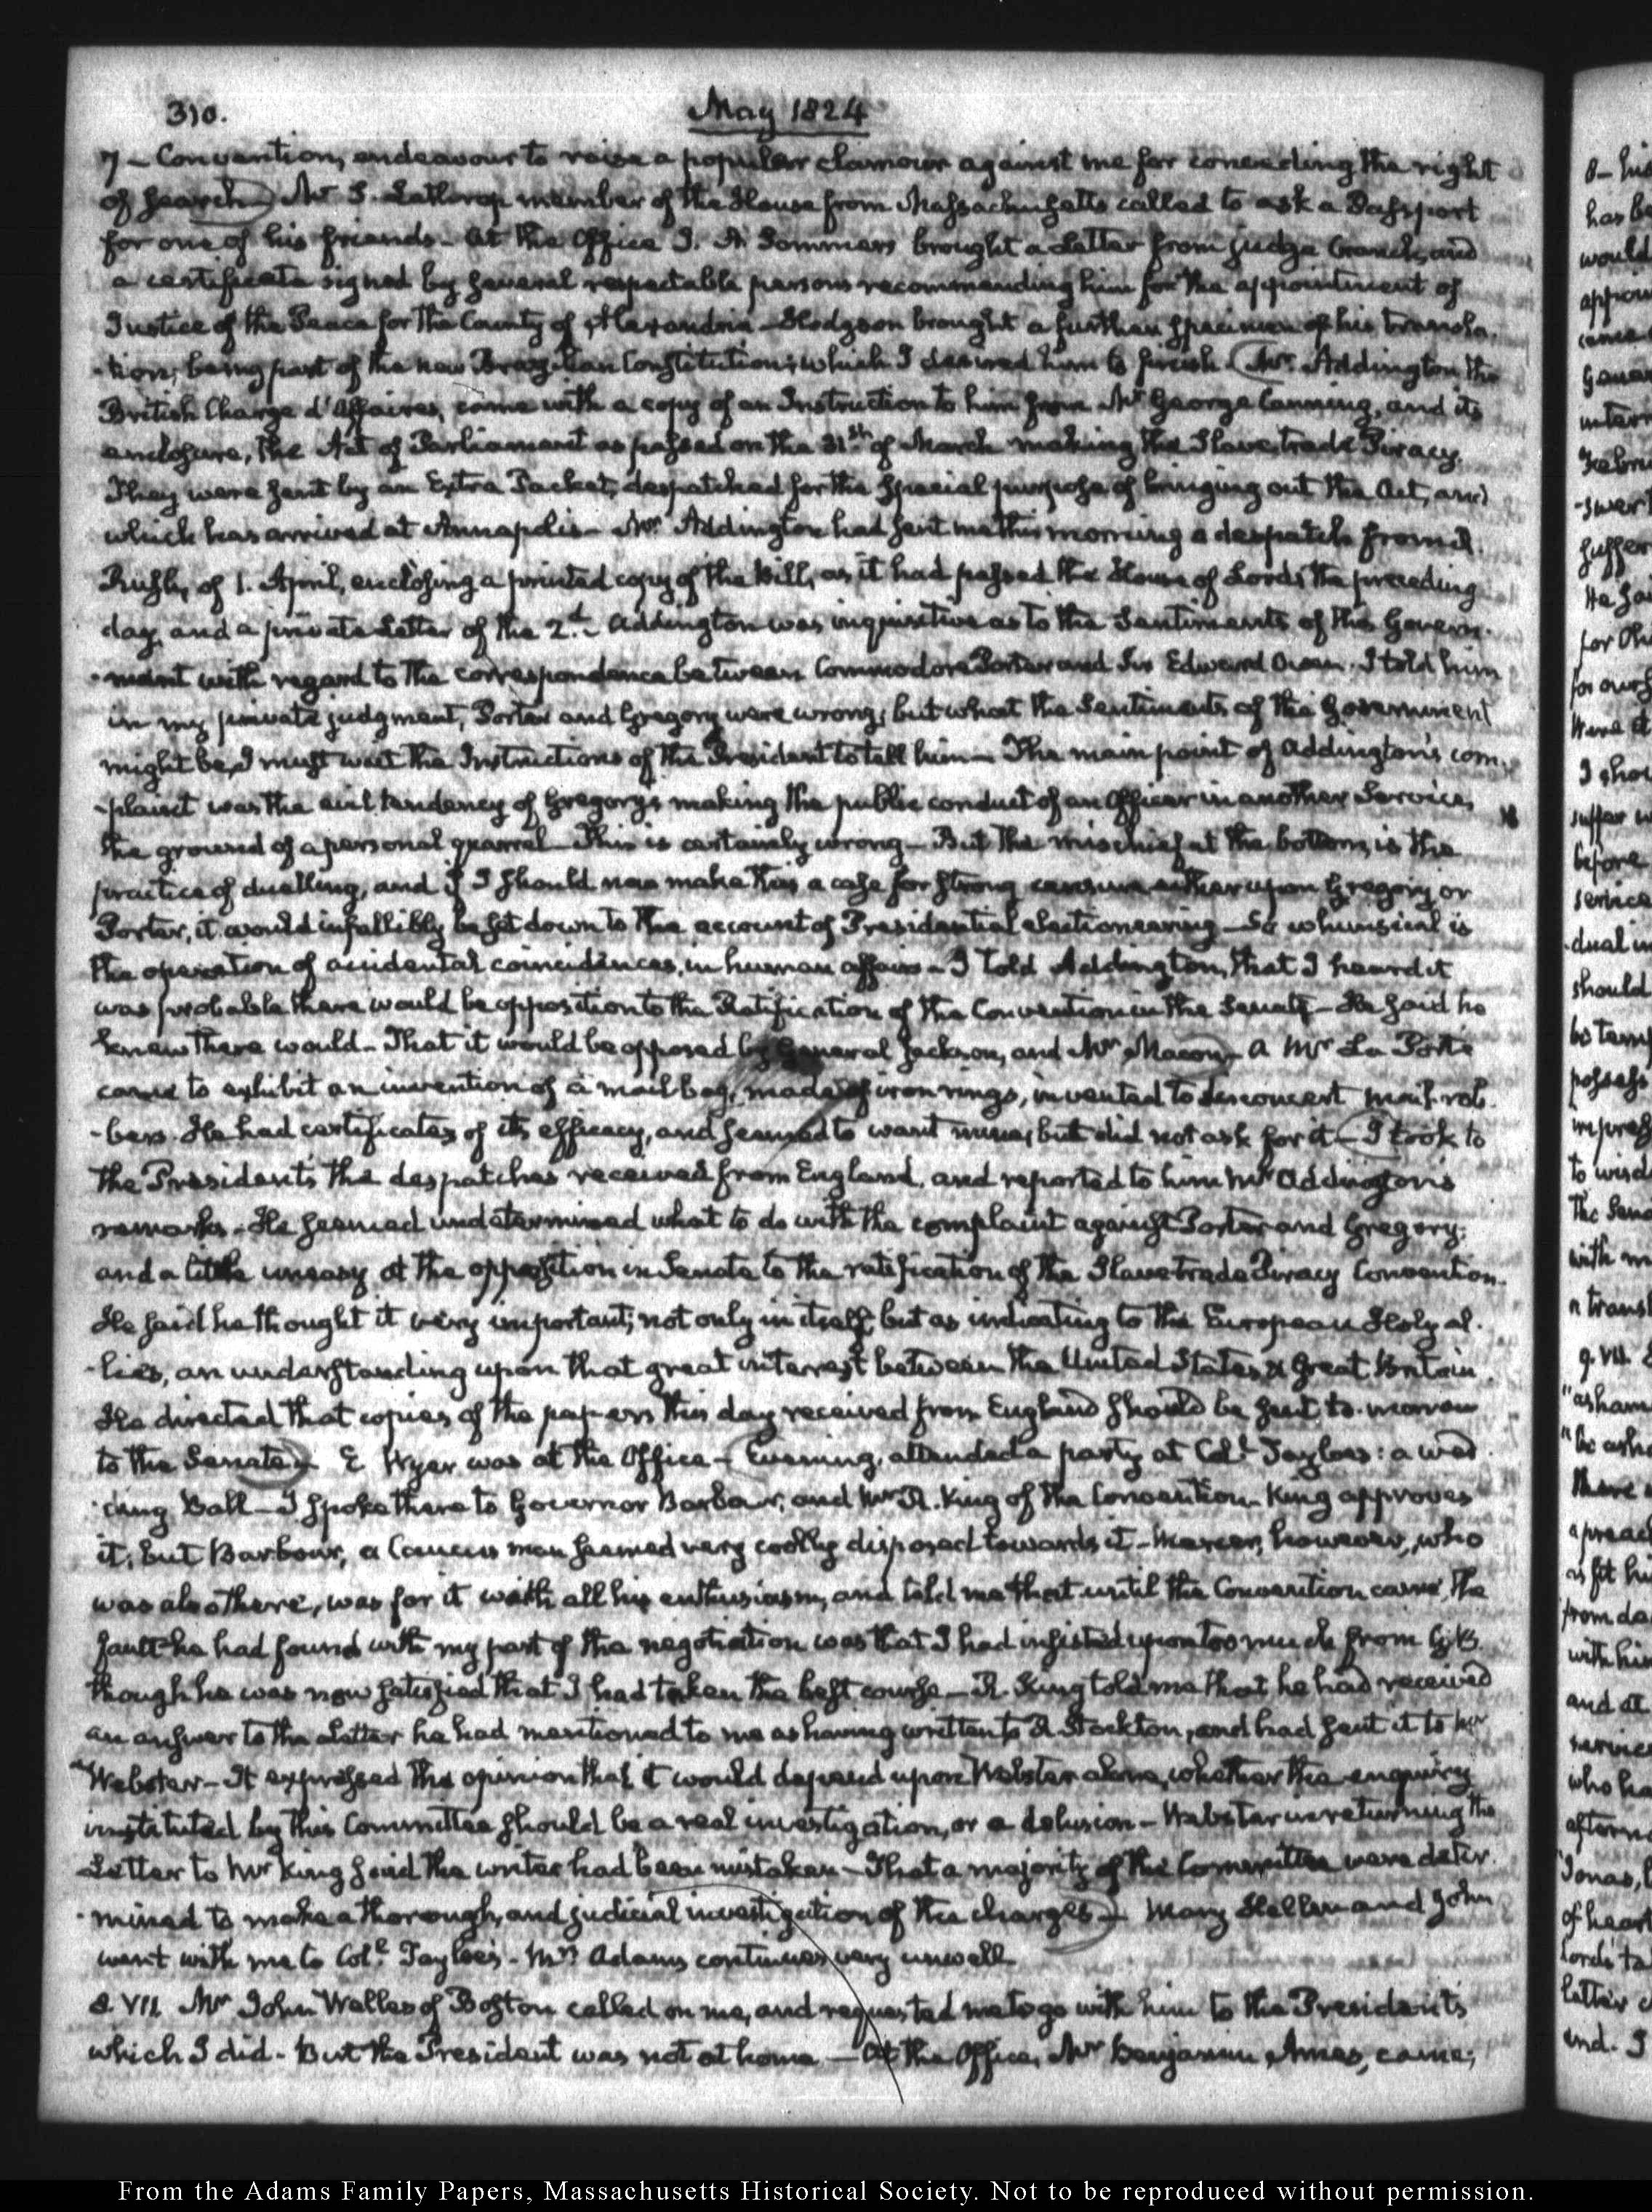 310.
May 1824
7 - Convention, endeavour to raise a popular clamour against me for conceding the right
of search - Mr. S. Lathrop member of the House from Massachusetts called to ask a Passport
for one of his friends - At the Office S. A. Sommers brought a Letter from judge Cranch, and
a certificate signed by several respectable persons recommending him for the appointment of
Justice of the Peace for the County of Alexandria - Hodgson brought a further specimen of his transla-
-tion; being part of the new Brazilian Constitution; which I desired him to finish - Mr. Addington the
British Charge d'Affaires, came with a copy of an Instruction to him from Mr George Canning, and its
enclosure, the Act of Parliament as passed on the 31st of March making the Slave trade Piracy.
They were sent by an Extra Packet, despatched for the special purpose of bringing out the Act, and
which has arrived at Annapolis - Mr. Addington had sent me this morning a despatch from R.
Rush, of 1. April, enclosing a printed copy of the bill, as it had passed the House of Lords the preceding
day, and a private Letter of the 2d. - Addington was inquisitive as to the Sentiments of this Govern-
-ment with regard to the correspondence between Commodore Porter and Sir Edward Owen. I told him
in my private judgment, Porter and Gregory were wrong; but what the Sentiments of the Government
might be, I must wait the Instructions of the President to tell him - The main point of Addington's com-
-plaint was the evil tendency of Gregory's making the public conduct of an Officer in another Service,
the ground of a personal quarrel - This is certainly wrong - But the mischief at the bottom, is the
practice of duelling, and if I should now make this a case for strong censure either upon Gregory or
Porter, it would infallibly be set down to the account of Presidential electioneering - So whimsical is
the operation of accidental coincidences, in human affairs - I told Addington, that I heard it
was probable there would be opposition to the Ratification of the Convention in the Senate - He said he
knew there would - That it would be opposed by General Jackson, and Mr Macon - A Mr La Porte
came to exhibit an invention of a mail bag, made of iron rings, invented to disconcert mail-rob-
-bers. He had certificates of its efficacy, and seemed to want mine, but did not ask for it - I took to
the President's the despatches received from England, and reported to him Mr Addington's
remarks - He seemed undetermined what to do with the complaint against Porter and Gregory;
and a little uneasy at the opposition in Senate to the ratification of the Slave trade Piracy Convention.
He said he thought it very important; not only in itself, but as indicating to the European Holy al-
-lies, an understanding upon that great interest between the United States & Great Britain.
He directed that copies of the papers this day received from England should be sent to-morrow
to the Senate - E Wyer was at the Office - Evening, attended a party at Coll. Tayloe's: a wed-
-ding Ball - I spoke there to Governor Barbour, and Mr R. King of the Convention - King approves
it; but Barbour, a Caucus man seemed very coolly disposed towards it - Mercer, however, who
was also there, was for it with all his enthusiasm, and told me that until the Convention came, the
fault he had found with my part of the negotiation was that I had insisted upon too much from G.B.
though he was now satisfied that I had taken the best course - R. King told me that he had received
an answer to the Letter he had mentioned to me as having written to R Stockton, and had sent it to Mr
Webster - It expressed the opinion that it would depend upon Webster alone, whether the enquiry
instituted by this Committee should be a real investigation, or a delusion - Webster in returning the
Letter to Mr King said the writer had been mistaken - That a majority of the Committee were deter-
-mined to make a thorough, and judicial investigation of the charges - Mary Hellen and John
went with me to Coll. Tayloe's - Mrs Adams continues very unwell.
8. VII. Mr John Welles of Boston called on me, and requested me to go with him to the President's
which I did - But the President was not at home - At the Office, Mr Benjamin Ames, came;
From the Adams Family Papers, Massachusetts Historical Society. Not to be reproduced without permission.